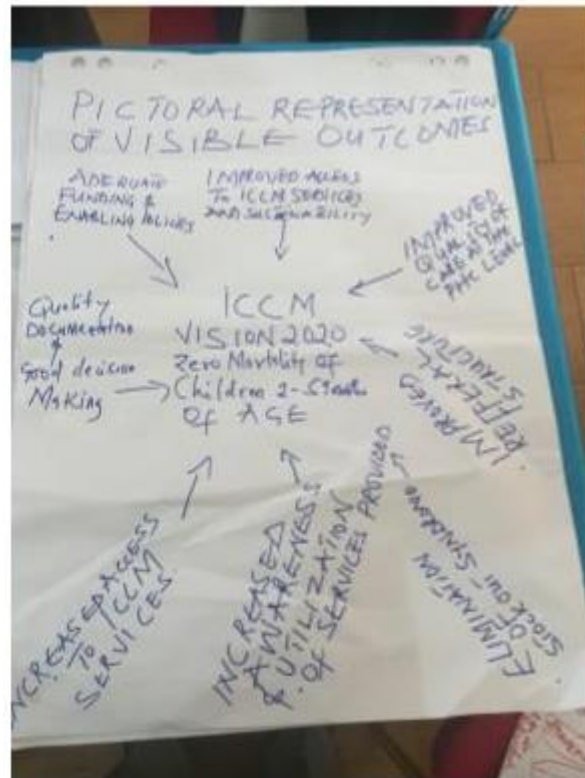 PICTORAL REPRESENTATION
OF VISIBLE OUTCOMES
ADEQUATE
FUNDING &
ENABLING POLICES
IMPROVED ACCESS
TO ICCM SERVICES
AND SUSTAINABILITY
IMPROVED
QUALITY OF
CARE AT THE
PHC LEVEL
Quality
DOCUMENTATION
&
Good decision
Making
ICCM
VISION 2020
Zero Mortality of
Children 2-
OF AGE
IMPROVED
REFFERAL
STRUCTURE
ELIMINATION
OF
STOCK OUT SYNDROME
INCREASED
AWARENESS
& UTILIZATION
OF SERVICES PROVIDED
INCREASED ACCESS
TO ICCM
SERVICES